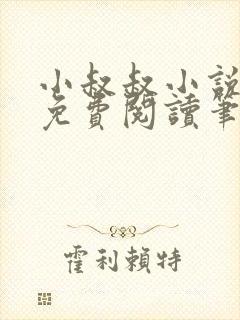 小叔叔小說
免費閱讀筆
霍利賴特